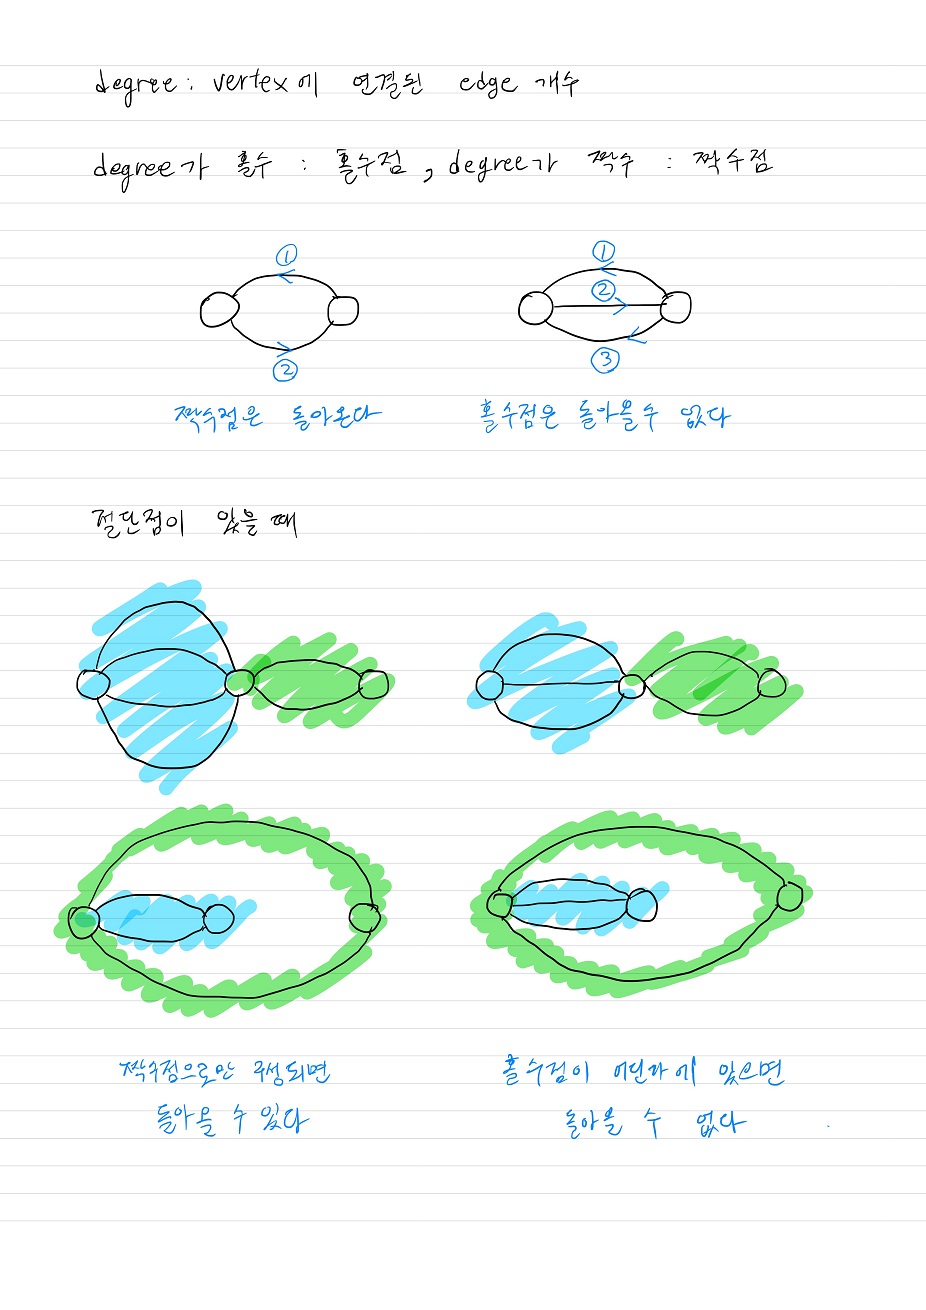 degree : vertex에 연결된 edge 개수
degree가 홀수 : 홀수점 , degree가 짝수 : 짝수점
① ①
② ②
③
짝수점은 돌아온다 홀수점은 돌아올수 없다
절단점이 있을 때
짝수점으로만 구성되면 홀수점이 어딘가에 있으면
돌아올 수 있다 돌아올 수 없다